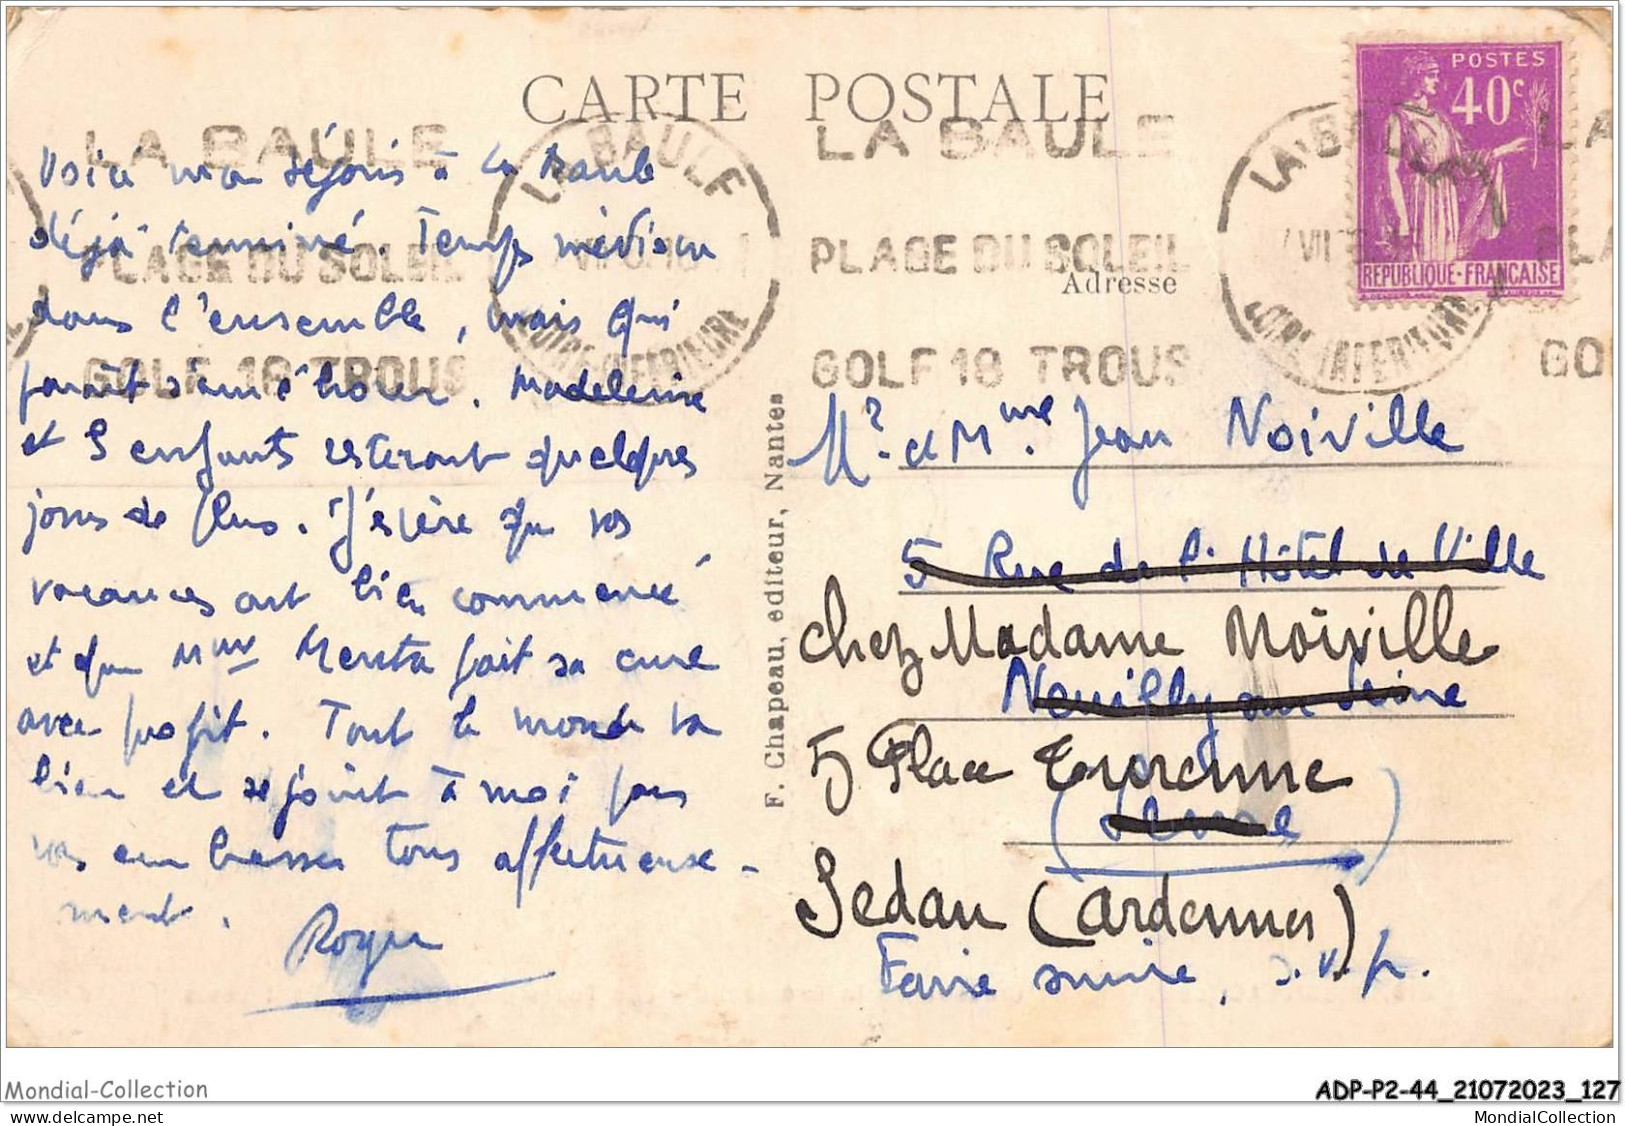 CARTE POSTALE
LA BAULE
PLAGE DU SOLEIL
GOLF 18 TROUS
LA BAULE
LOIRE INFERIEURE
LA BAULE
PLAGE DU SOLEIL
GOLF 18 TROUS
LA BAULE
VII
LOIRE INFERIEURE
LA
PLA
GO
POSTES
40c
REPUBLIQUE·FRANÇAISE
Voici mon séjour à La Baule
déjà terminé. Temps médiocre
dans l'ensemble, mais qui
paraît s'améliorer. Madeleine
et 3 enfants resteront quelques
jours de plus. J'espère que vos
vacances ont bien commencé
et que Mme fait sa cure
avec profit. Tout le monde va
bien et se joint à moi pour
vous embrasser tous affectueuse-
ment.
Roger
F. Chapeau, editeur, Nantes
Adresse
Mr. et Mme. Jean Noiville
5 Rue de l'Hôtel de Ville
chez Madame Noiville
Neuilly sur Seine
5 Place Turenne
(Seine)
Sedan (Ardennes)
Faire suivre, s.v.p.
Mondial-Collection
ADP-P2-44_21072023_127
www.delcampe.net
MondialCollection